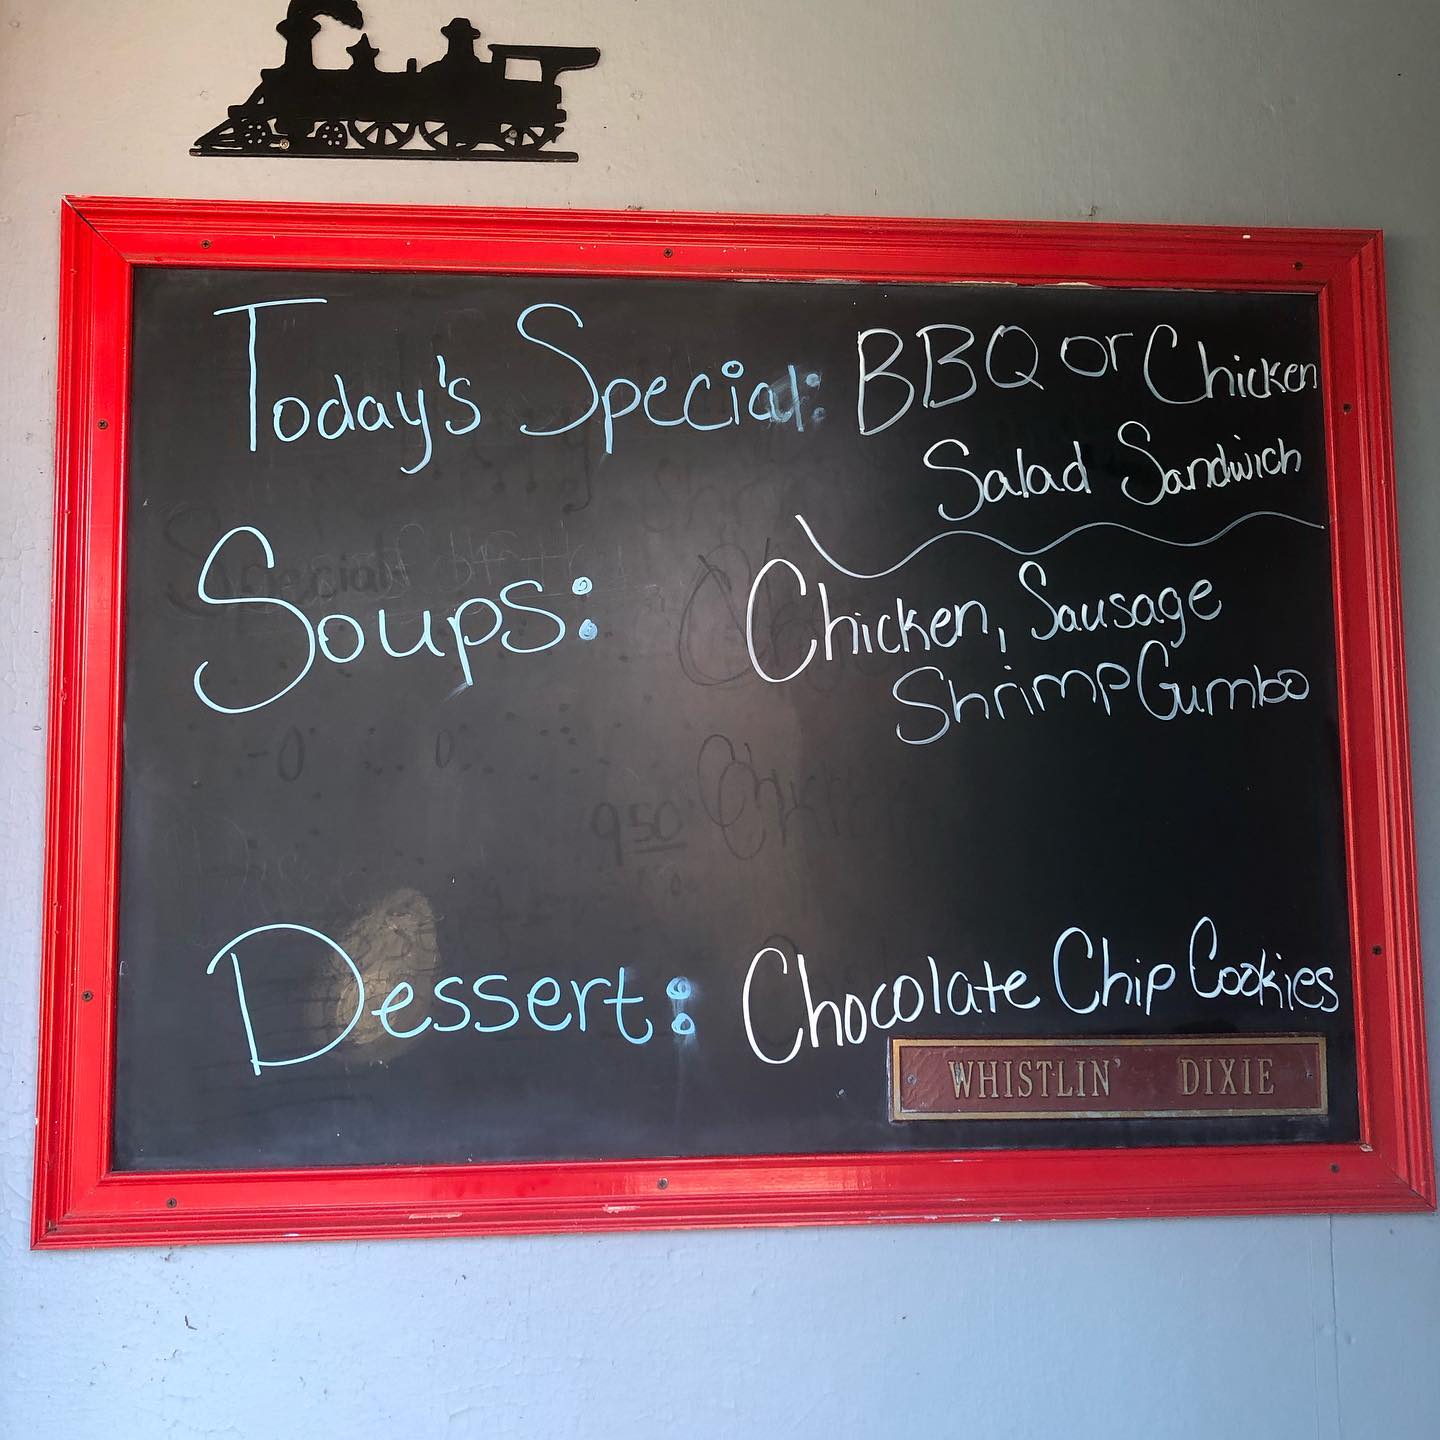 Today's Special: BBQ or Chicken
Salad Sandwich
Soups: Chicken, Sausage
Shrimp Gumbo
9.50
Dessert: Chocolate Chip Cookies
WHISTLIN' DIXIE